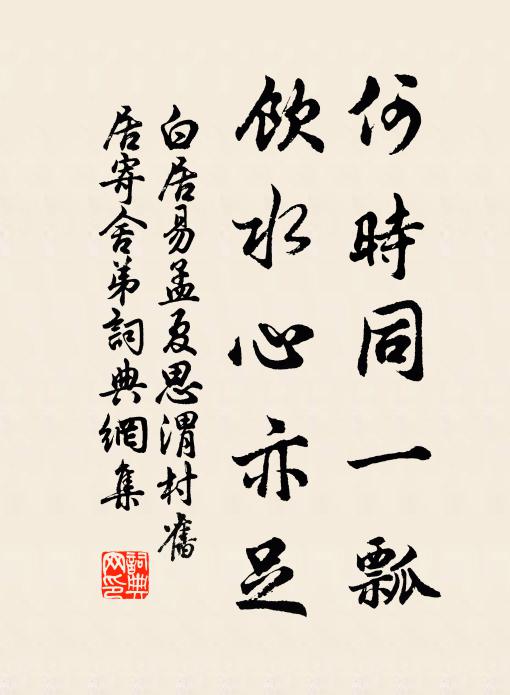 何時同一瓢
飲水心亦足
白居易孟夏思渭村舊
居寄舍弟詞典網集
詞典
网印